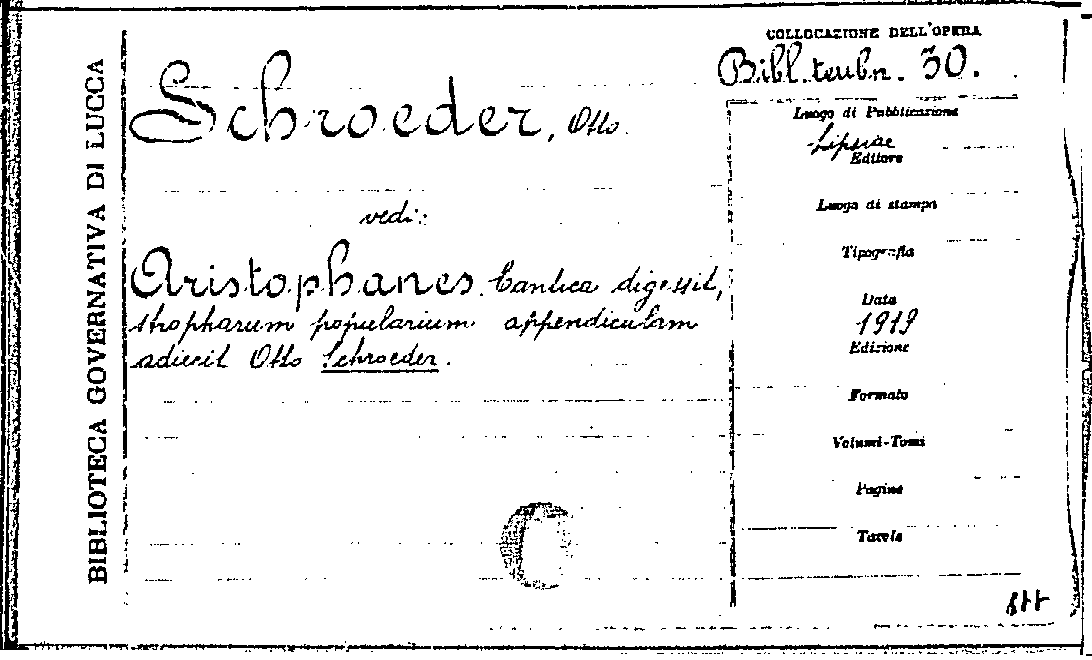 BIBLIOTECA GOVERNATIVA DI LUCCA
Schroeder, Otto.
vedi:
Aristophanes. Cantica digessit,
stropharum popularium appendiculam
adiecit Otto Schroeder.
COLLOCAZIONE DELL'OPERA
Bibl. teubn. 30.
Luogo di Pubblicazione
Lipsiae
Editore
Luogo di stampa
Tipografia
Data
1919
Edizione
Formato
Volumi-Tomi
Pagine
Tavole